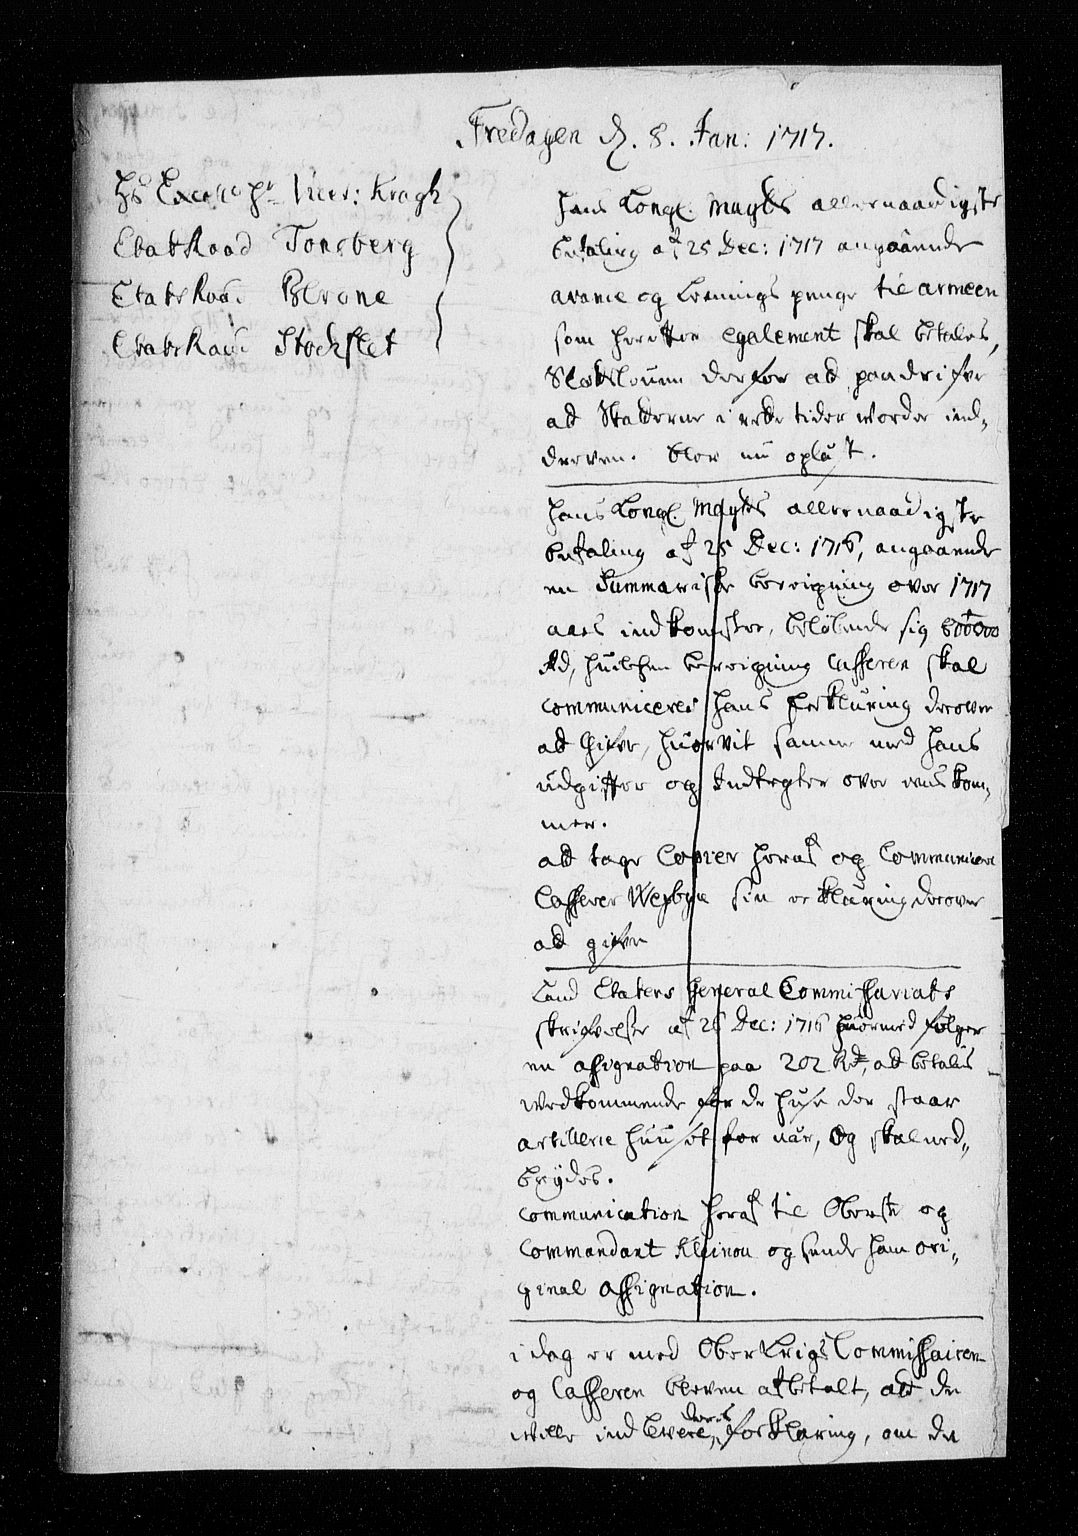 Fredagen d. 8. Jan: 1717.
Hs Excell: Hr Vice: Kragh
EtatsRaad Tonsberg
Etats Raad Blixne
Etats Raad Stochflet
Hans Kongl. Maytts allernaadigste
befaling af 25 Dec: 1717 angaaende
avance og Lønings penge til armeen
som herefter egalement skal betales,
Slotsloven derfor at paadrifve
at Skatterne i rette tider worder ind-
dreven. blev nu oplæst.
Hans Kongl. Maytts allernaadigste
befaling af 25 Dec: 1716, angaaende
en Summariske beregning over 1717
aars indkomster, beløbende sig 800000
Rd, huilchen beregning Casseren skal
communiceres hans forklaring derover
at Gifve, huorvit samme med hans
udgifter og Indtegter over eens kom-
mer.
at tage Copier heraf og Communicere
Casserer Weybye sin erklæring derover
at gifve
Land Etatens General Commissariats
skrifvelse af 26 Dec: 1716 huormed følger
en assignation paa 202 Rd, at betale
wedkommende for de huse der staar
artillerie huuset for nær, og skal ned-
brydes.
communication heraf til Oberste og
Commandant Kleinou og sende ham ori-
ginal assignation.
i dag er med Ober Krigs Commissairen
og Casseren bleven afbetalt, att de
wille ind levere deris forklaring, om de